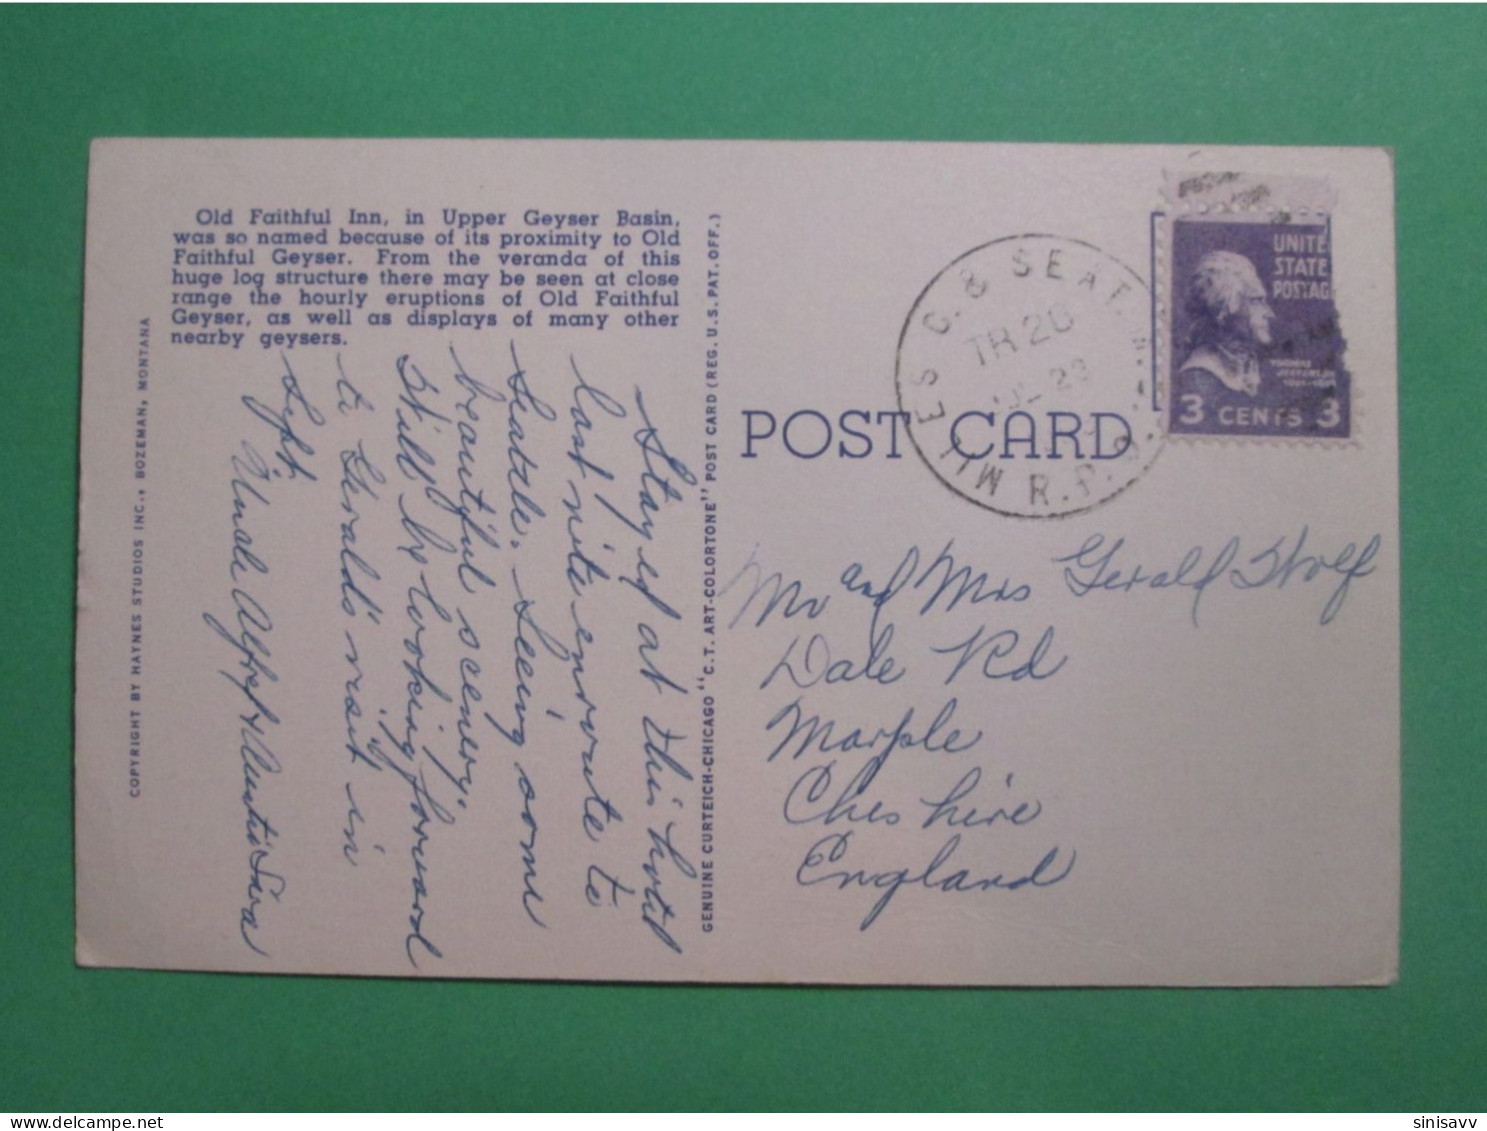 Old Faithful Inn, in Upper Geyser Basin,
was so named because of its proximity to Old
Faithful Geyser. From the veranda of this
huge log structure there may be seen at close
range the hourly eruptions of Old Faithful
Geyser, as well as displays of many other
nearby geysers.
COPYRIGHT BY HAYNES STUDIOS INC., BOZEMAN, MONTANA
Stayed at this hotel
last nite enroute to
Seatle. Seeing some
beautiful scenery.
Still by looking forward
to Gerald's visit in
Sept.
Uncle Alfred & Auntie Sara
GENUINE CURTEICH-CHICAGO "C.T. ART-COLORTONE" POST CARD (REG. U.S. PAT. OFF.)
POST CARD
MIL ES C. & SEAT. W.D. R.P.O.
TR 20
JUL 23
UNITE
STATE
POSTAG
3 CENTS 3
Mr and Mrs Gerald Wolf
Dale Rd
Marple
Cheshire
England
sinisavv